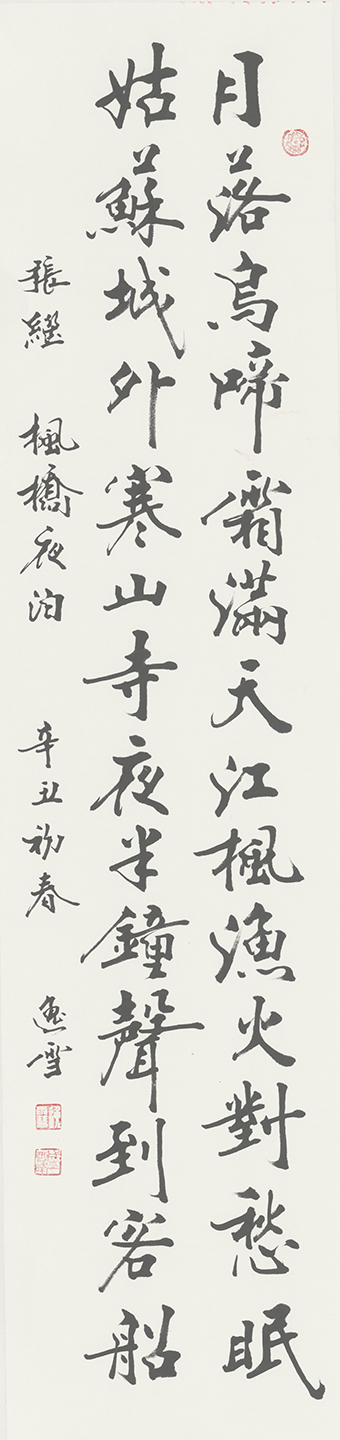 月落烏啼霜滿天江楓漁火對愁眠
姑蘇城外寒山寺夜半鐘聲到客船
張繼 楓橋夜泊 辛丑初春 逸雪